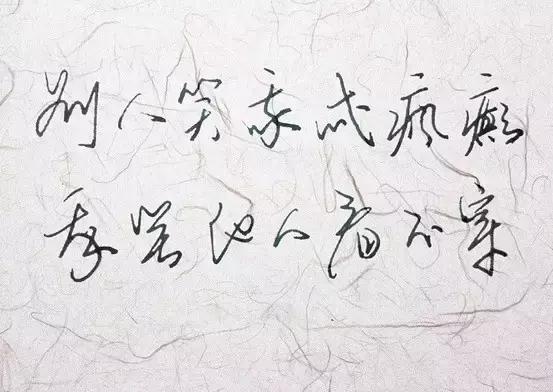 别人笑我忒疯癫
我笑他人看不穿